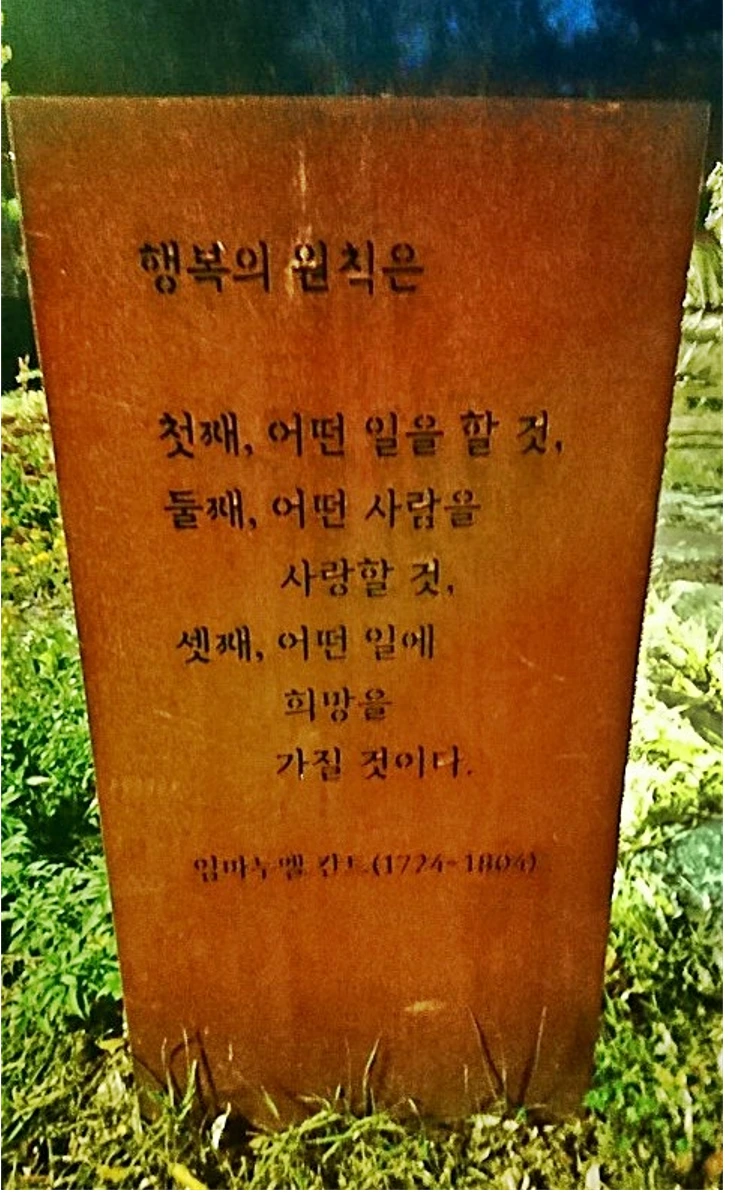 행복의 원칙은
첫째, 어떤 일을 할 것,
둘째, 어떤 사람을
사랑할 것,
셋째, 어떤 일에
희망을
가질 것이다.
임마누엘 칸트(1724-1804)